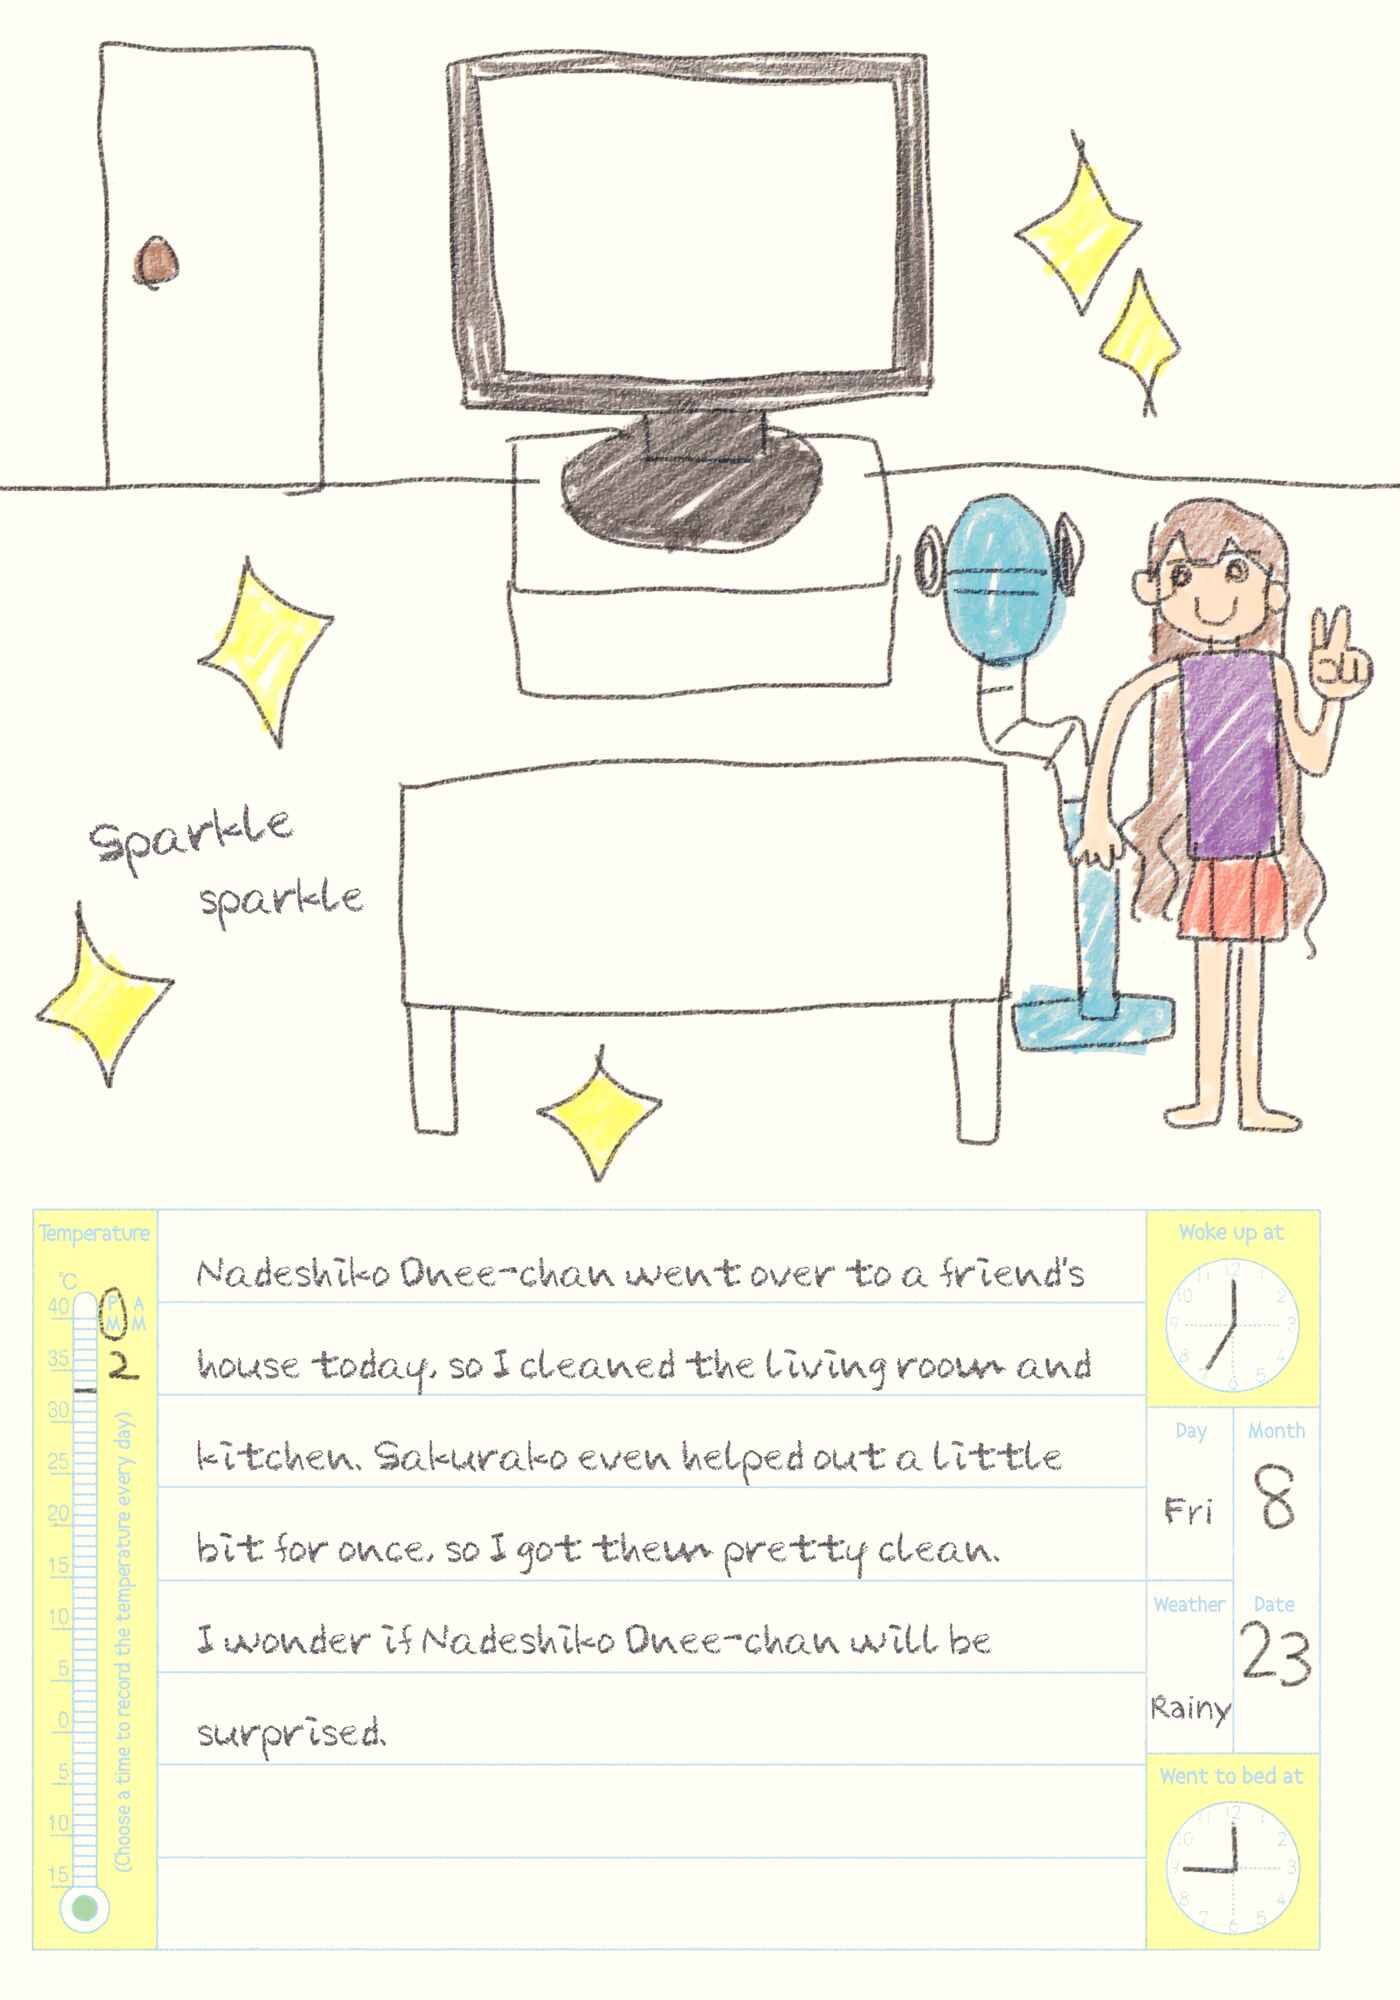 Sparkle
sparkle
Temperature
°C
40
35
30
25
20
15
10
5
0
5
10
15
PM AM
2
(Choose a time to record the temperature every day)
Nadeshiko Onee-chan went over to a friend's
house today, so I cleaned the living room and
kitchen. Sakurako even helped out a little
bit for once, so I got them pretty clean.
I wonder if Nadeshiko Onee-chan will be
surprised.
Woke up at
12 1 2 3 4 5 6 7 8 9 10 11
Day
Fri
Month
8
Weather
Rainy
Date
23
Went to bed at
12 1 2 3 4 5 6 7 8 9 10 11